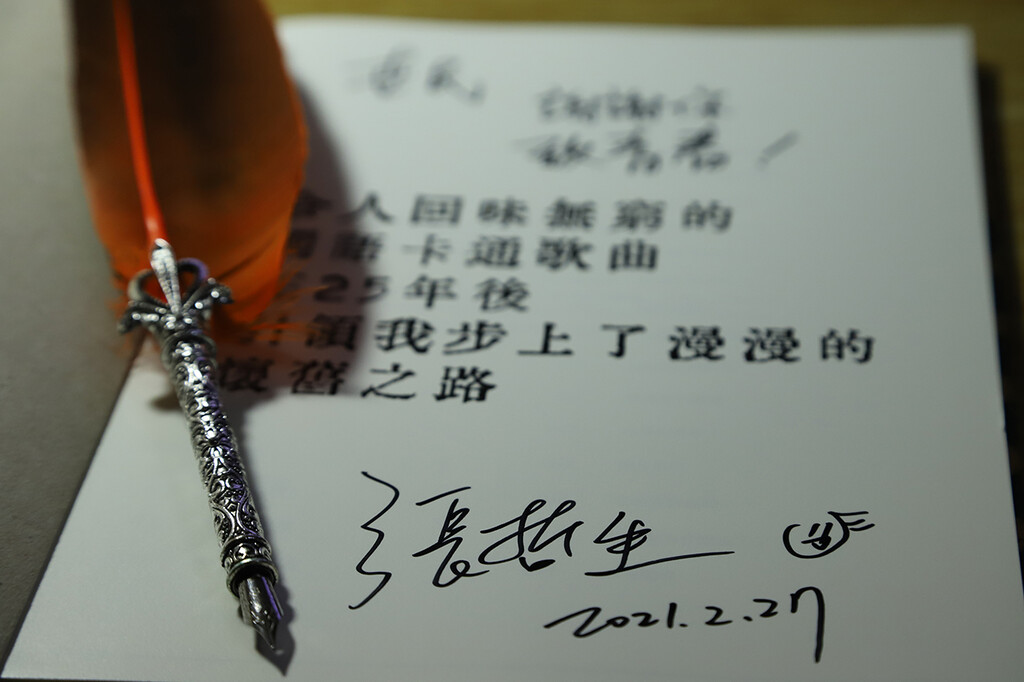 謝謝你
令人回味無窮的
國語卡通歌曲
25年後
帶領我步上了漫漫的
懷舊之路
張哲生
2021.2.27